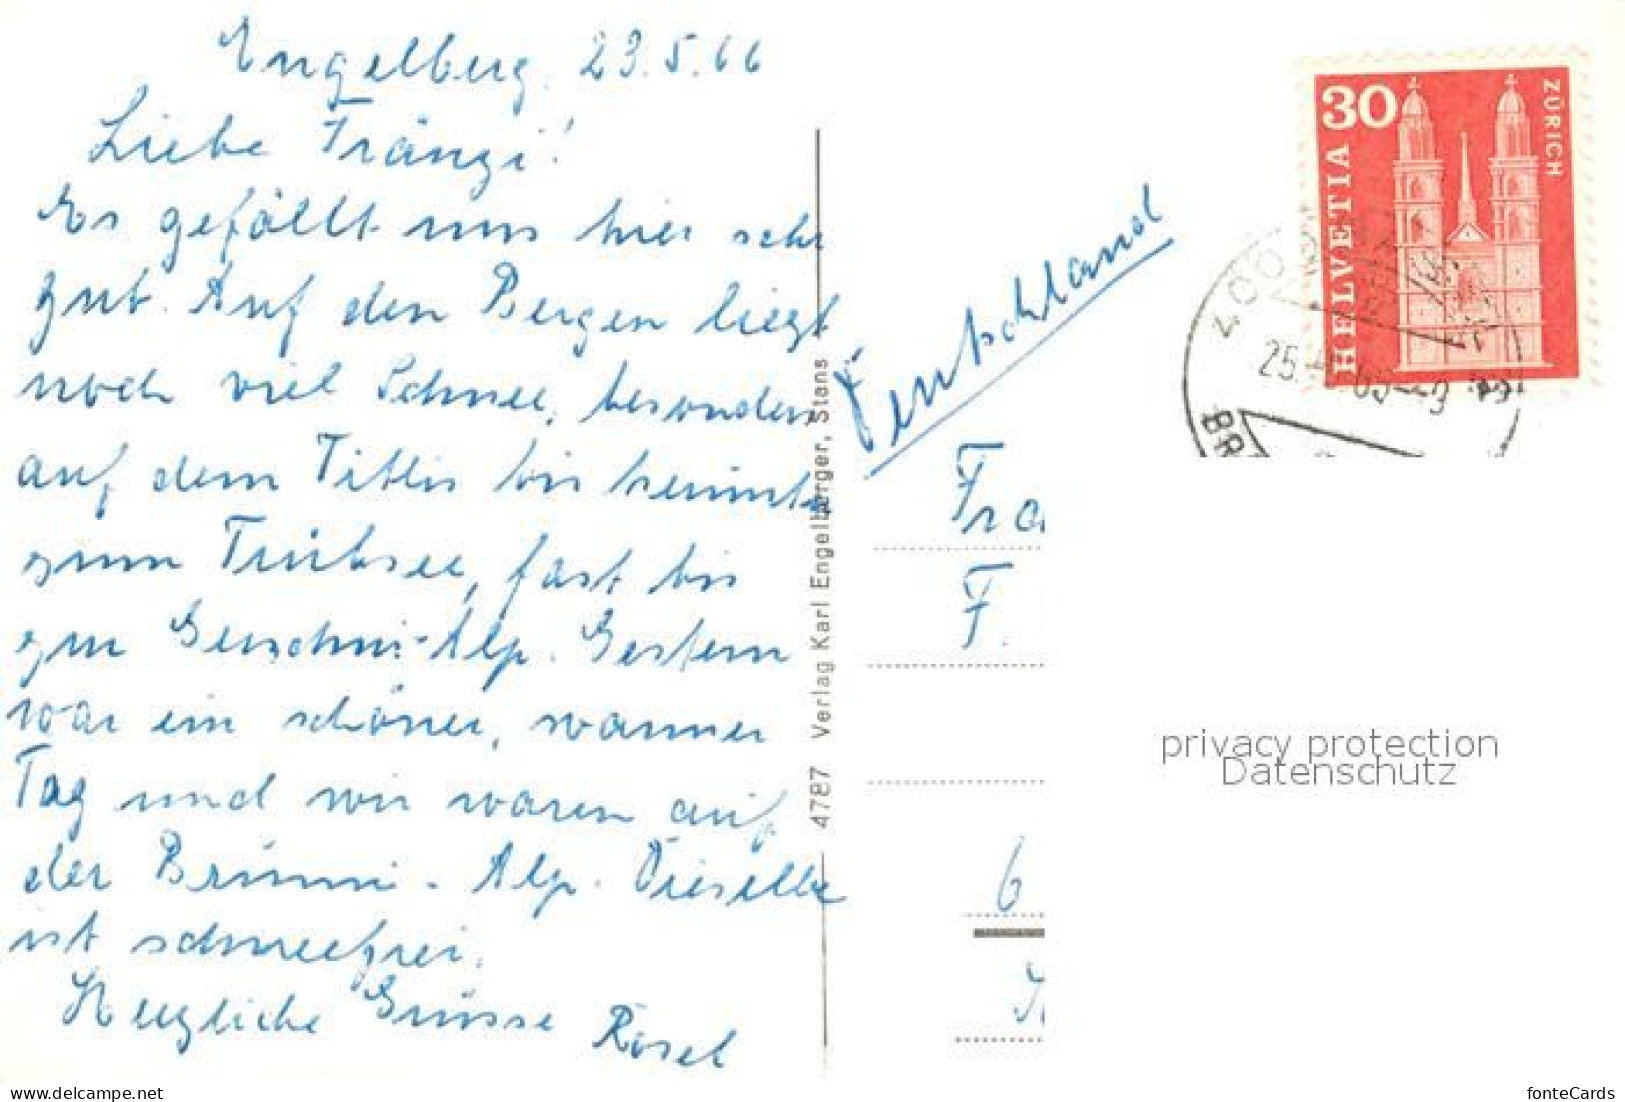 Engelberg, 23.5.66
Liebe Fränzi!
Es gefällt uns hier sehr
gut. Auf den Bergen liegt
noch viel Schnee, besonders
auf dem Titlis bis herunter
zum Trübsee, fast bis
zur Gerschni-Alp. Gestern
war ein schöner, warmer
Tag und wir waren auf
der Brunni-Alp. Dieselbe
ist schneefrei.
Herzliche Grüsse Rösel
4787 Verlag Karl Engelberger, Stans
Deutschland
Fra
F.
6
30
HELVETIA
ZÜRICH
25.
BR
privacy protection
Datenschutz
www.delcampe.net
fonteCards